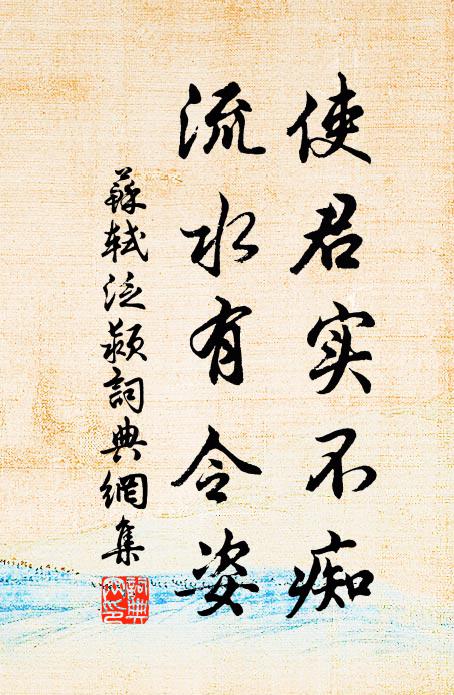 使君实不痴
流水有令姿
蘇軾泛颍詞典網集